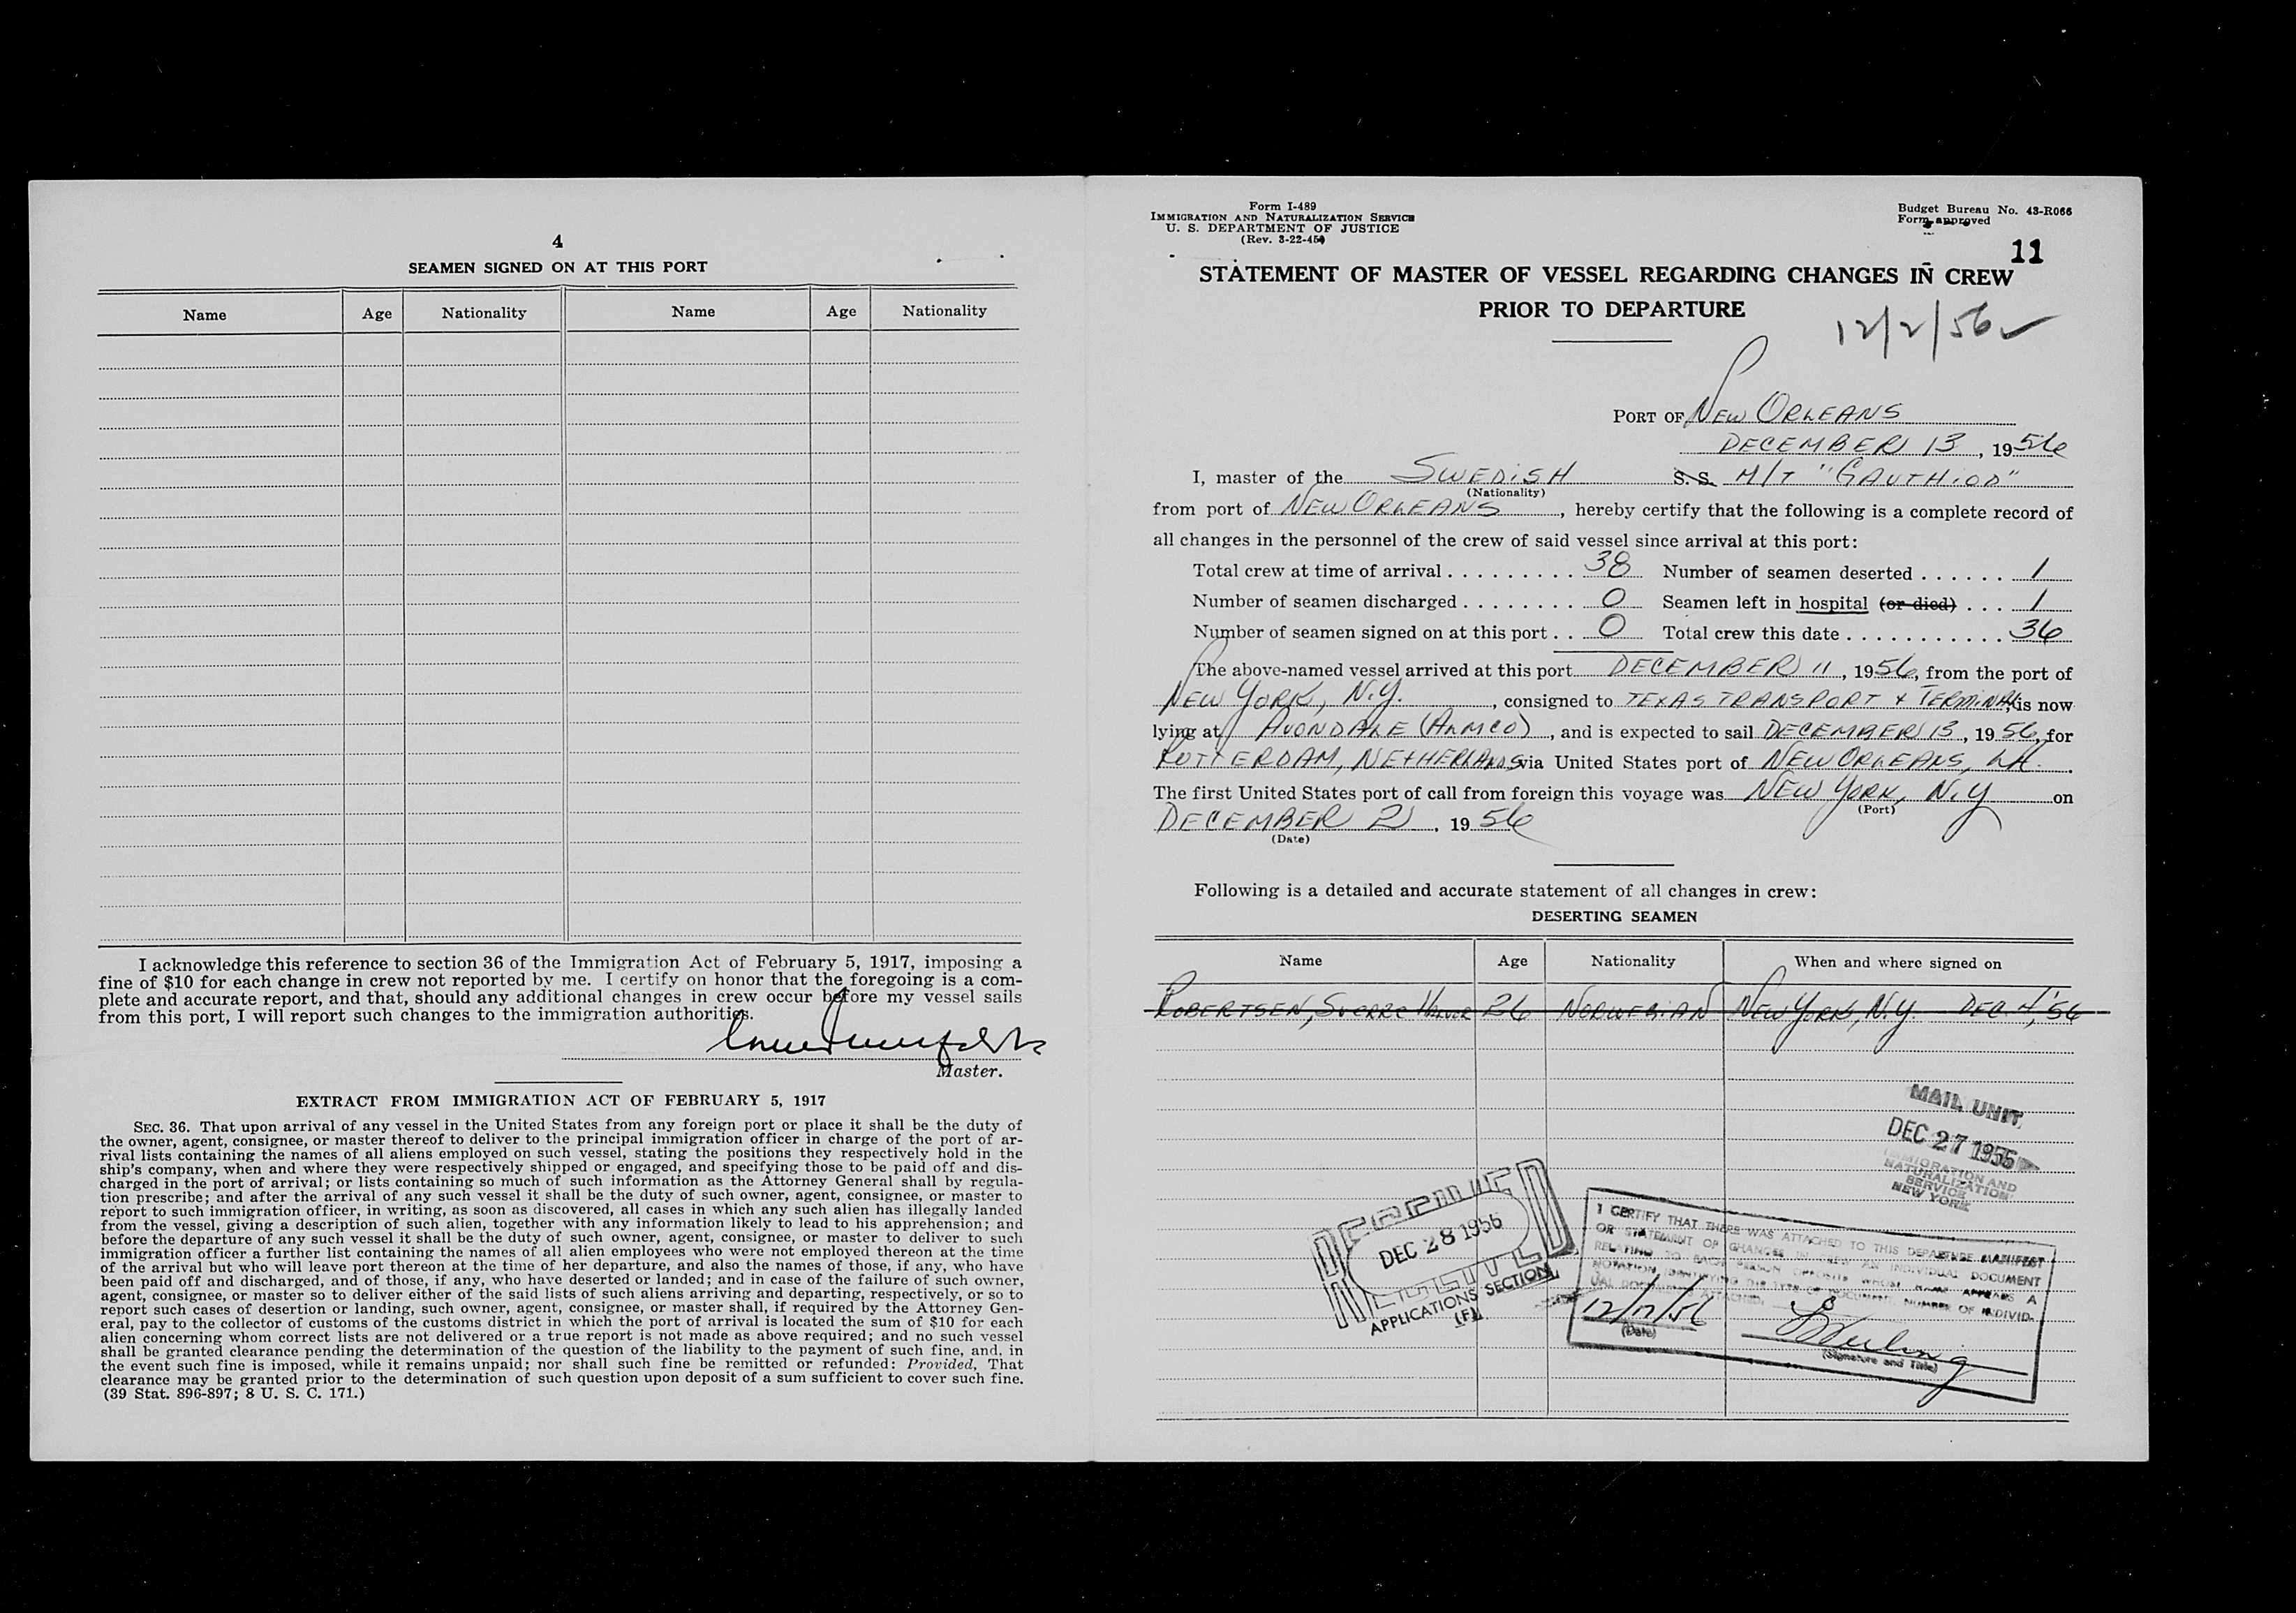 4
SEAMEN SIGNED ON AT THIS PORT
Name Age Nationality Name Age Nationality
I acknowledge this reference to section 36 of the Immigration Act of February 5, 1917, imposing a
fine of $10 for each change in crew not reported by me. I certify on honor that the foregoing is a com-
plete and accurate report, and that, should any additional changes in crew occur before my vessel sails
from this port, I will report such changes to the immigration authorities.
Master.
EXTRACT FROM IMMIGRATION ACT OF FEBRUARY 5, 1917
SEC. 36. That upon arrival of any vessel in the United States from any foreign port or place it shall be the duty of
the owner, agent, consignee, or master thereof to deliver to the principal immigration officer in charge of the port of ar-
rival lists containing the names of all aliens employed on such vessel, stating the positions they respectively hold in the
ship's company, when and where they were respectively shipped or engaged, and specifying those to be paid off and dis-
charged in the port of arrival; or lists containing so much of such information as the Attorney General shall by regula-
tion prescribe; and after the arrival of any such vessel it shall be the duty of such owner, agent, consignee, or master to
report to such immigration officer, in writing, as soon as discovered, all cases in which any such alien has illegally landed
from the vessel, giving a description of such alien, together with any information likely to lead to his apprehension; and
before the departure of any such vessel it shall be the duty of such owner, agent, consignee, or master to deliver to such
immigration officer a further list containing the names of all alien employees who were not employed thereon at the time
of the arrival but who will leave port thereon at the time of her departure, and also the names of those, if any, who have
been paid off and discharged, and of those, if any, who have deserted or landed; and in case of the failure of such owner,
agent, consignee, or master so to deliver either of the said lists of such aliens arriving and departing, respectively, or so to
report such cases of desertion or landing, such owner, agent, consignee, or master shall, if required by the Attorney Gen-
eral, pay to the collector of customs of the customs district in which the port of arrival is located the sum of $10 for each
alien concerning whom correct lists are not delivered or a true report is not made as above required; and no such vessel
shall be granted clearance pending the determination of the question of the liability to the payment of such fine, and, in
the event such fine is imposed, while it remains unpaid; nor shall such fine be remitted or refunded: Provided, That
clearance may be granted prior to the determination of such question upon deposit of a sum sufficient to cover such fine.
(39 Stat. 896-897; 8 U. S. C. 171.)
Form I-489
IMMIGRATION AND NATURALIZATION SERVICE
U. S. DEPARTMENT OF JUSTICE
(Rev. 3-22-45)
Budget Bureau No. 43-R066
Form approved
11
STATEMENT OF MASTER OF VESSEL REGARDING CHANGES IN CREW
PRIOR TO DEPARTURE
12/2/56
PORT OF NEW ORLEANS
DECEMBER 13, 1956
I, master of the SWEDISH S. S. M/T "GAUTHIOD"
(Nationality)
from port of NEW ORLEANS, hereby certify that the following is a complete record of
all changes in the personnel of the crew of said vessel since arrival at this port:
Total crew at time of arrival 38 Number of seamen deserted 1
Number of seamen discharged 0 Seamen left in hospital (or died) 1
Number of seamen signed on at this port 0 Total crew this date 36
The above-named vessel arrived at this port DECEMBER 11, 1956, from the port of
NEW YORK, N.Y., consigned to TEXAS TRANSPORT & TERMINAL, is now
lying at AVONDALE (ARMCO), and is expected to sail DECEMBER 13, 1956, for
ROTTERDAM, NETHERLANDS via United States port of NEW ORLEANS, LA.
The first United States port of call from foreign this voyage was NEW YORK, N.Y on
(Port)
DECEMBER 2, 1956
(Date)
Following is a detailed and accurate statement of all changes in crew:
DESERTING SEAMEN
Name Age Nationality When and where signed on
ROBERTSEN, SVERRE 26 NORWEGIAN NEW YORK, N.Y DEC. 4, '56
MAIL UNIT
DEC 27 1956
IMMIGRATION AND
NATURALIZATION
SERVICE
NEW YORK
RECEIVED
DEC 28 1956
APPLICATIONS SECTION
(F)
I CERTIFY THAT THERE WAS ATTACHED TO THIS DEPARTURE MANIFEST
OR STATEMENT OF CHANGES IN CREW AN INDIVIDUAL DOCUMENT
RELATING TO EACH PERSON OPPOSITE WHOSE NAME APPEARS A
NOTATION IDENTIFYING THE TYPE OF DOCUMENT, NUMBER OF INDIVID-
UAL DOCUMENTS ATTACHED
12/17/56
(Date)
(Signature and Title)